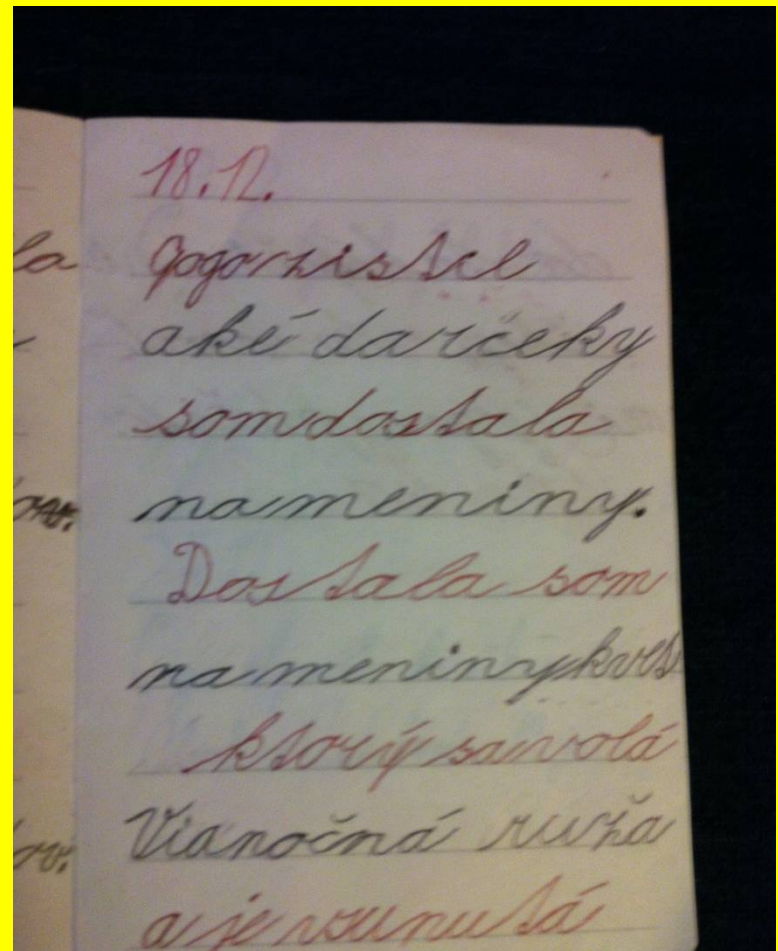 18.12.
Gogo zistil
aké darčeky
som dostala
na meniny.
Dostala som
na meniny kvet
ktorý sa volá
Vianočná ruža
a je